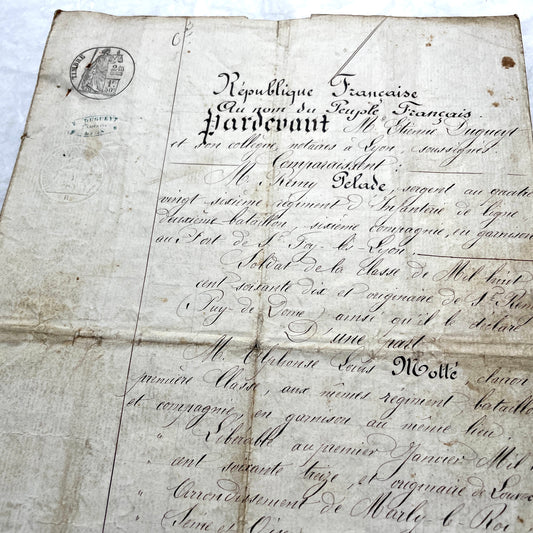 TIMBRE
République Française
Au nom du Peuple Français.
Pardevant Me Etienne Duguet
et son collègue, notaires à Lyon, soussignés
Comparaissent :
M. Rémy Pelade, sergent au quatre
vingt sixième régiment d'Infanterie de ligne
deuxième bataillon, sixième compagnie, en garnison
au Fort de Ste Foy-lès-Lyon,
Soldat de la classe de Mil huit
cent soixante dix et originaire de St
(Puy-de-Dôme) ainsi qu'il le déclare
D'une part
M. Alphonse Louis Motté, clairon
première classe, aux mêmes régiment bataillon
et compagnie, en garnison au même lieu,
" Libérable au premier Janvier Mil
" cent soixante treize, et originaire de
" Arrondissement de Marly-le-Roi,
" (Seine et Oise